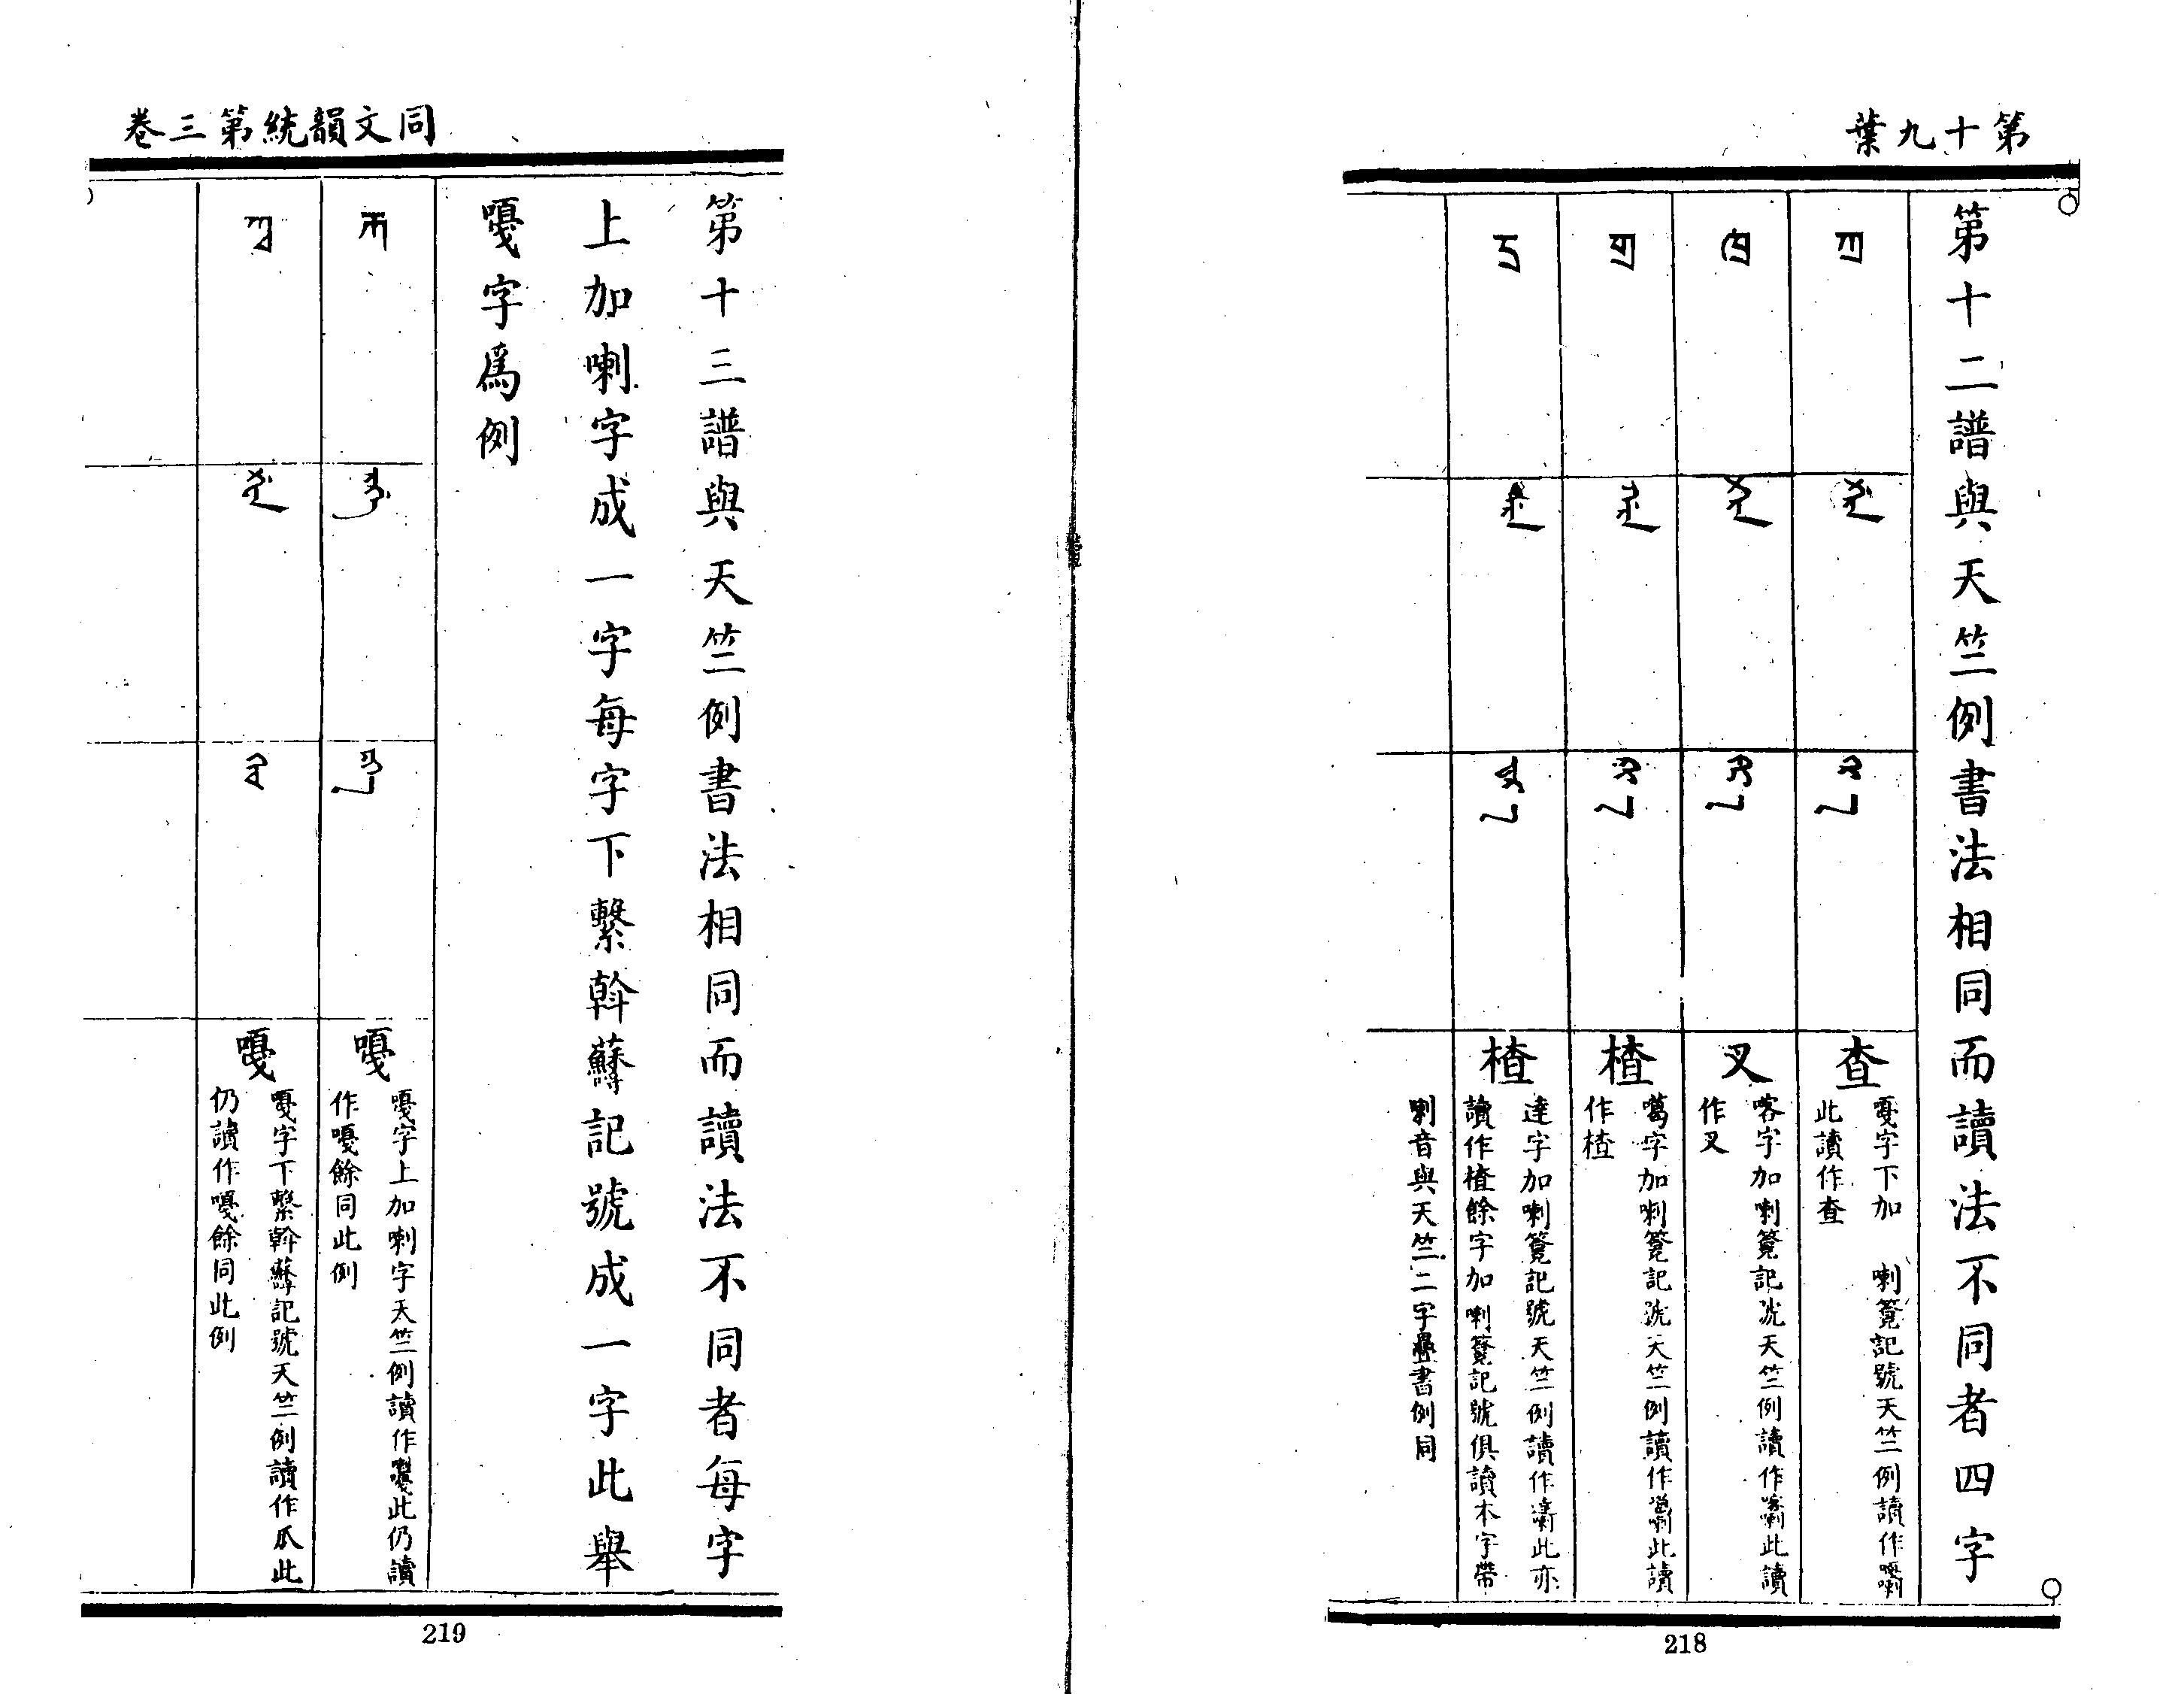 第十九葉
第十二譜與天竺例書法相同而讀法不同者四字
查
嘎字下加 喇箆記號天竺例讀作嘎喇
此讀作查
叉
喀字加喇箆記號天竺例讀作喀喇此讀
作叉
楂
噶字加喇箆記號天竺例讀作噶喇此讀
作楂
楂
達字加喇箆記號天竺例讀作達喇此亦
讀作楂餘字加喇箆記號俱讀本字帶
喇音與天竺二字疊書例同
218
同文韻統第三卷
第十三譜與天竺例書法相同而讀法不同者每字
上加喇字成一字每字下繫斡蘇記號成一字此舉
嘎字爲例
嘎
嘎字上加喇字天竺例讀作此仍讀
作嘎餘同此例
嘎
嘎字下繫斡蘇記號天竺例讀作瓜此
仍讀作嘎餘同此例
219